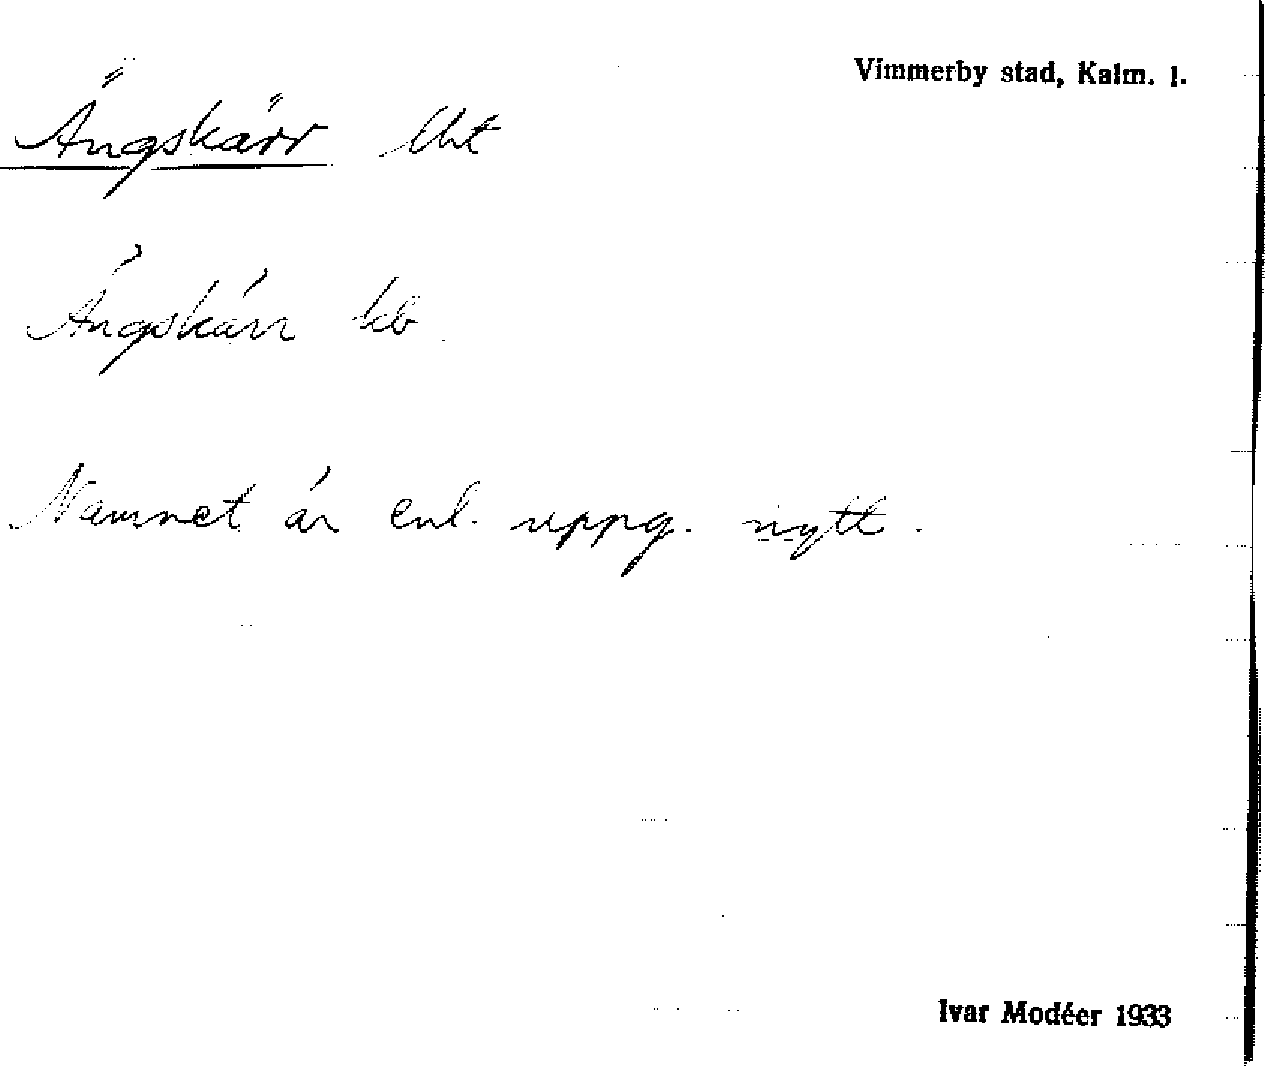 Vimmerby stad, Kalm. l.
Ängskärr lht
Ängskärr kb.
Namnet är enl. uppg. nytt.
Ivar Modéer 1933